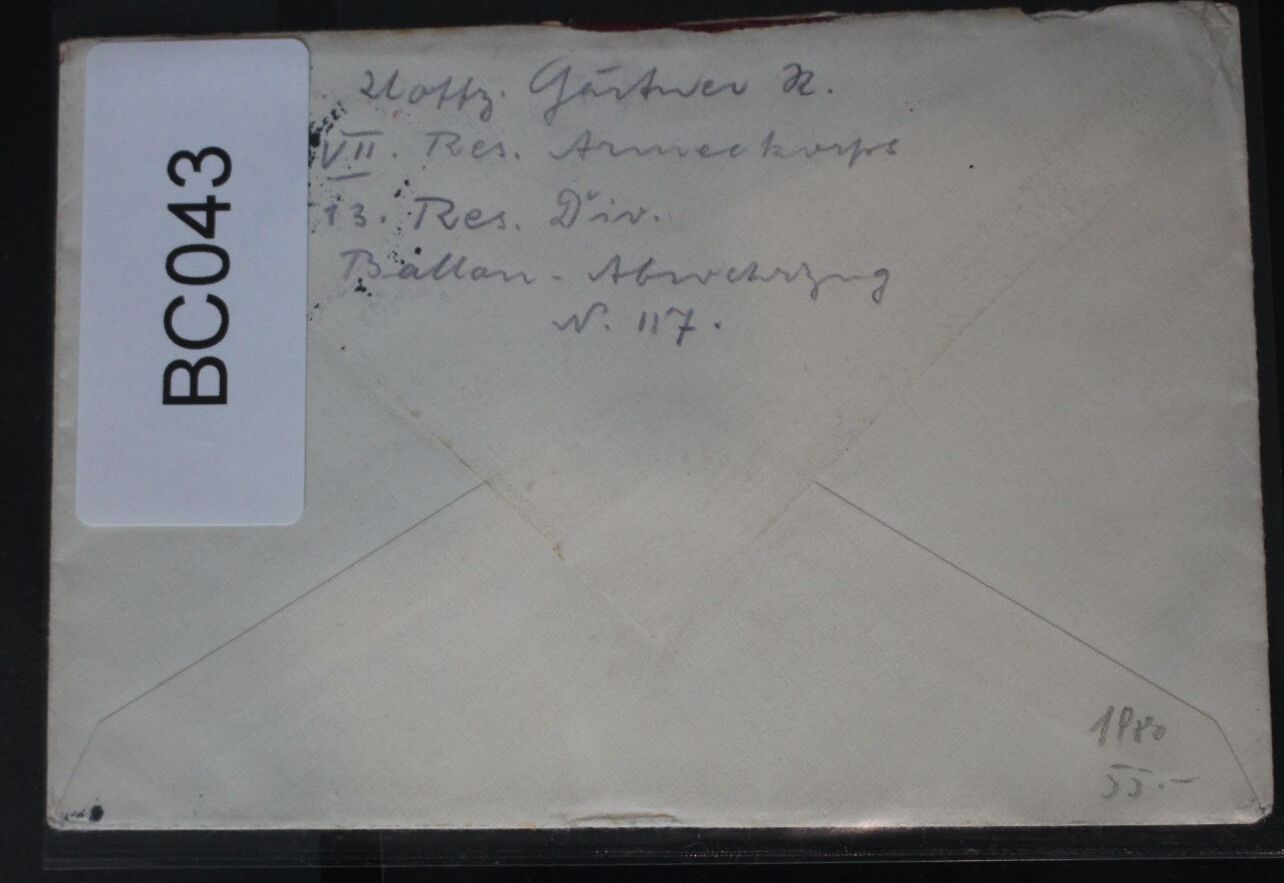 BC043
Uoffz. Gärtner K.
VII. Res. Armeekorps
13. Res. Div.
Ballon-Abwehrzug
N. 117.
55.-